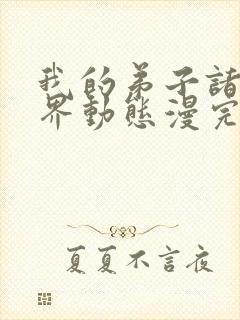 我的弟子諸
界動態漫完
夏夏不言夜